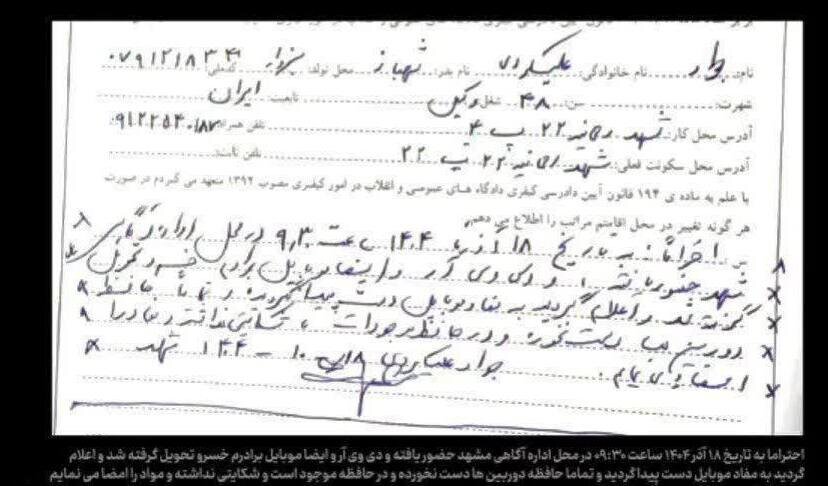 نام: جواد نام خانوادگی: علیکردی نام پدر: شهباز محل تولد: سبزوار کدملی: ۰۷۹۱۲۱۸۳۴
شهرت: سن: ۴۸ شغل: وکیل تابعیت: ایران
آدرس محل کار: مشهد ۲۲ پ ۴ تلفن همراه: ۰۹۱۲۲۵۴۰۱۸۷
آدرس محل سکونت فعلی: مشهد ۲۲ پ ۲۲ تلفن ثابت:
با علم به ماده ی ۱۹۴ قانون آیین دادرسی کیفری دادگاه های عمومی و انقلاب در امور کیفری مصوب ۱۳۹۲ متعهد می گردم در صورت
هر گونه تغییر در محل اقامتم مراتب را اطلاع می دهم.
احتراماً به تاریخ ۱۸ آذر ۱۴۰۴ ساعت ۹:۳۰ در محل اداره آگاهی
مشهد حضور یافته و دی وی آر و ایضا موبایل برادرم خسرو تحویل
گرفته شد و اعلام گردید به مفاد موبایل دست پیدا گردیده و تماما حافظه
دوربین ها دست نخورده و در حافظه موجود است شکایتی نداشته و مفاد را
امضا می نمایم. جواد علیکردی ۱۴۰۴ مشهد
احتراما به تاریخ ۱۸ آذر ۱۴۰۴ ساعت ۰۹:۳۰ در محل اداره آگاهی مشهد حضور یافته و دی وی آر و ایضا موبایل برادرم خسرو تحویل گرفته شد و اعلام
گردید به مفاد موبایل دست پیدا گردید و تماما حافظه دوربین ها دست نخورده و در حافظه موجود است و شکایتی نداشته و مواد را امضا می نمایم